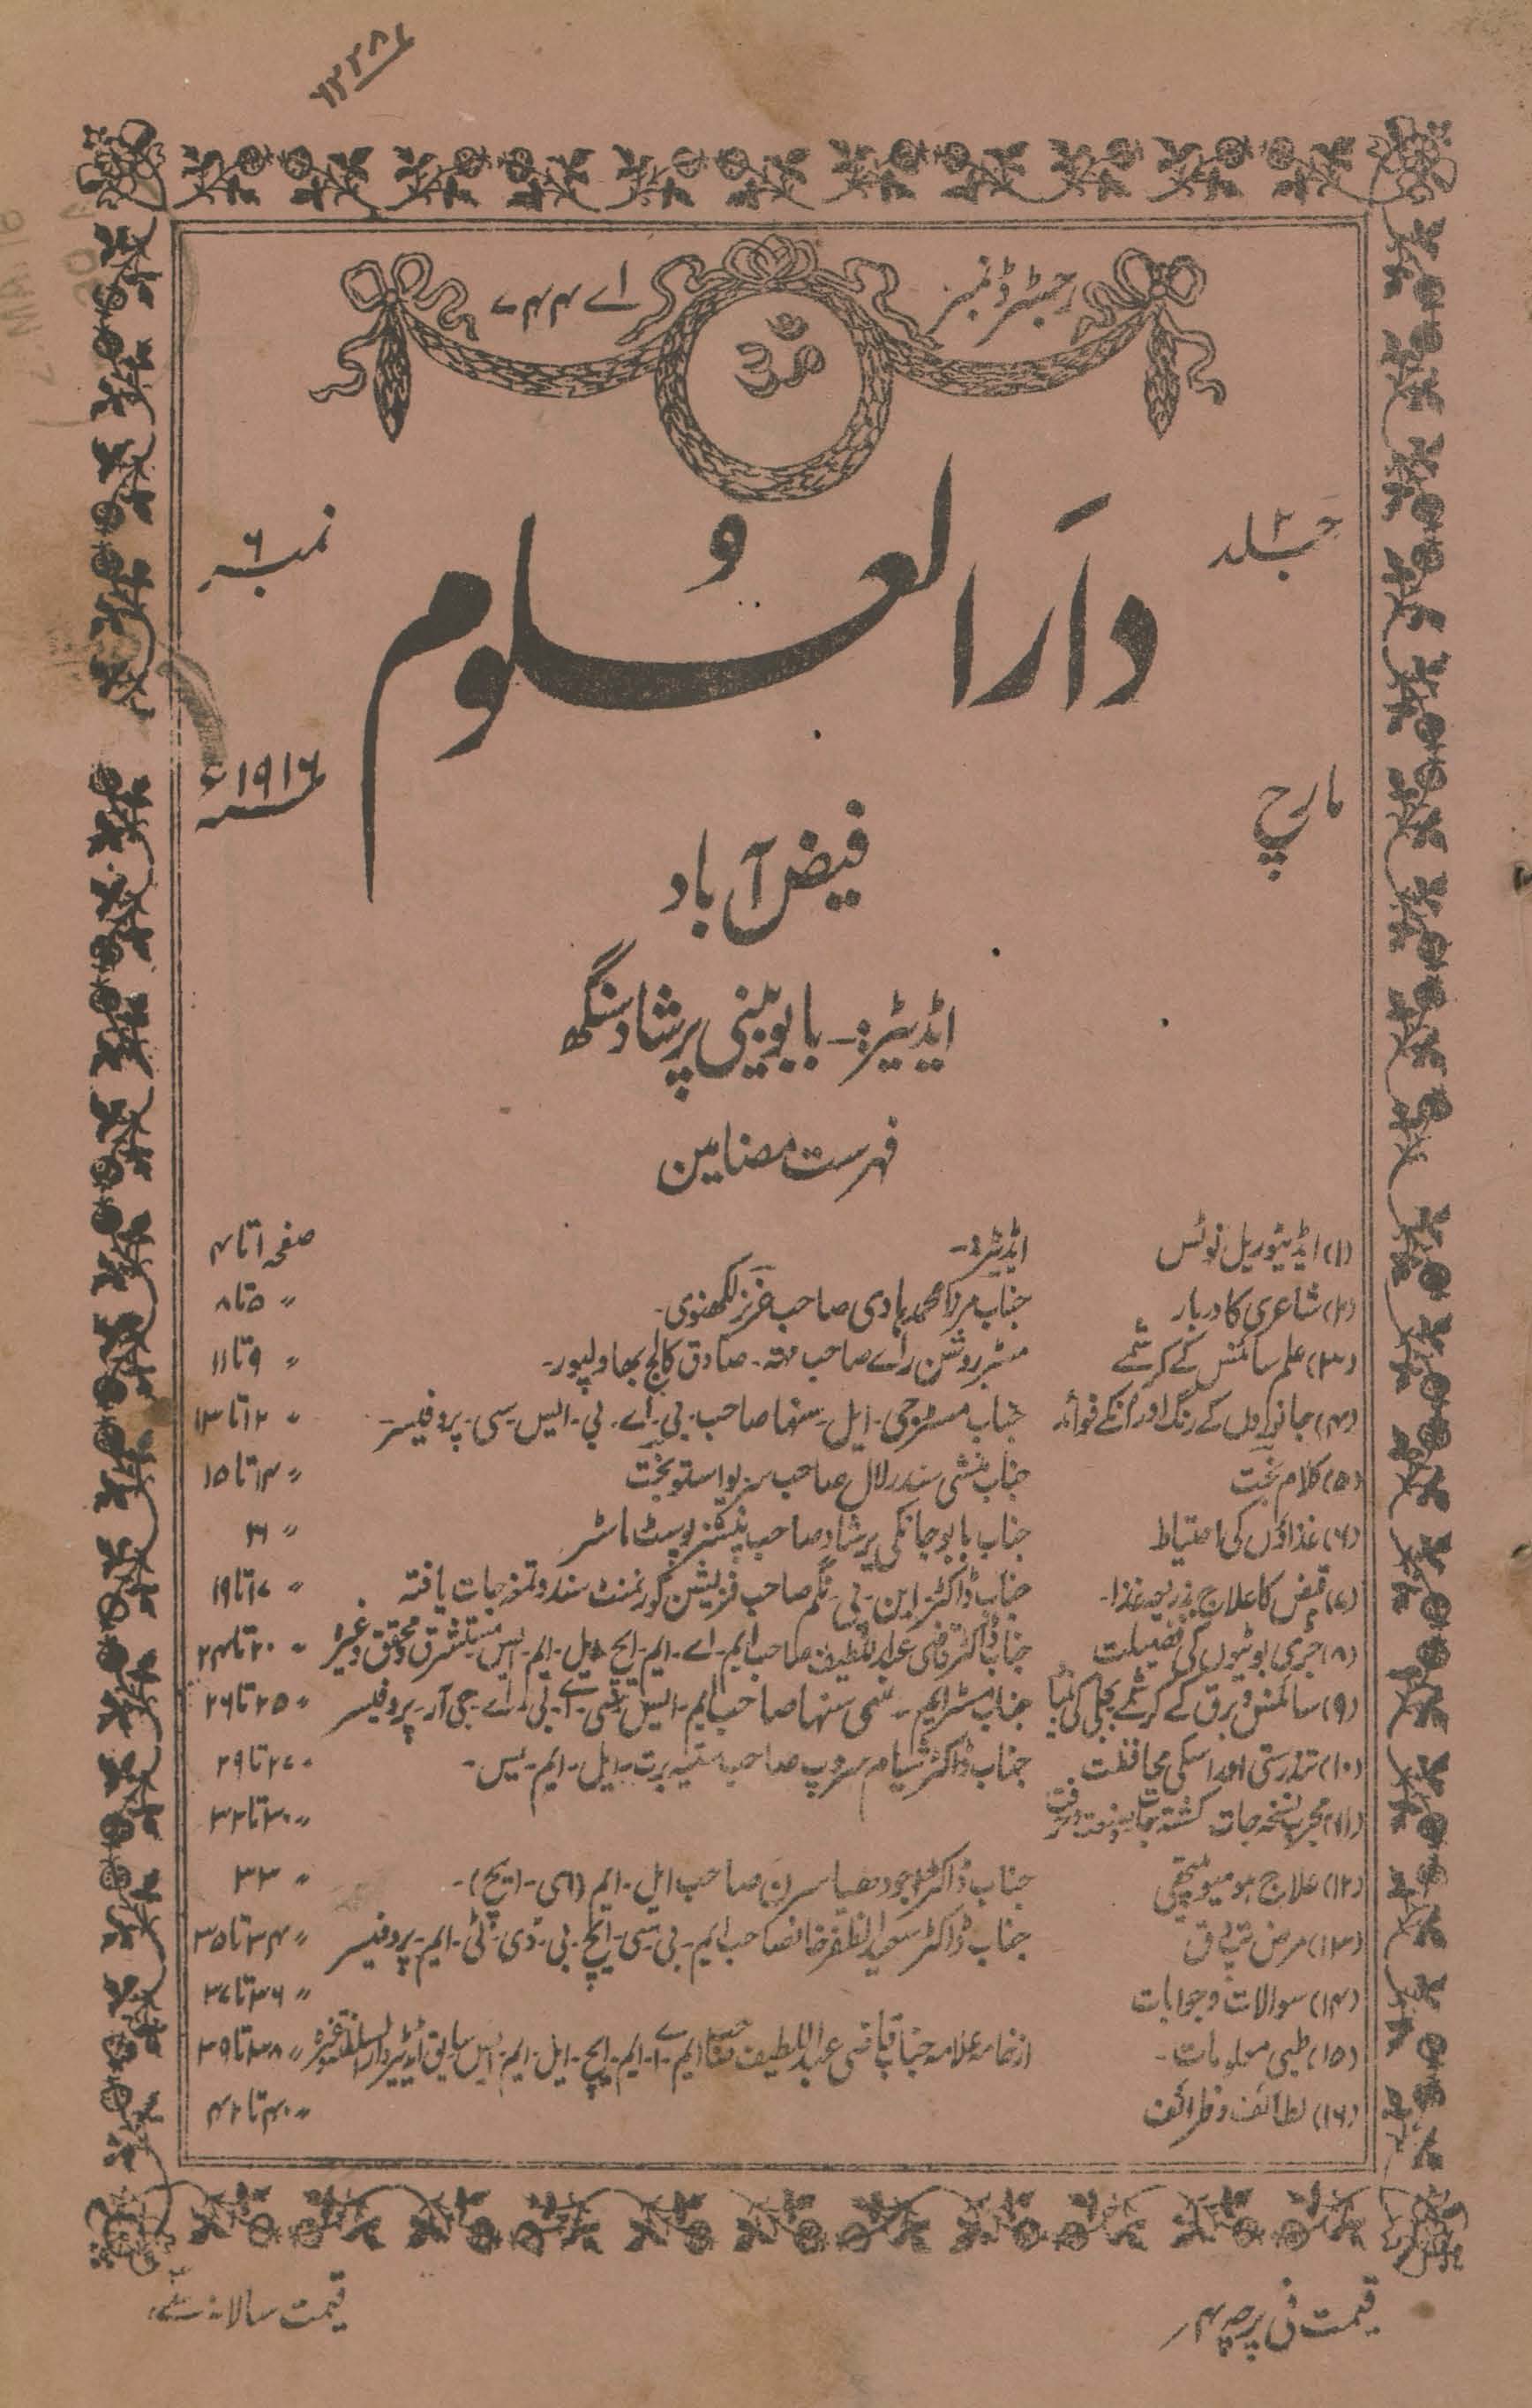 ۱۲۲۸۴
رجسٹرڈ نمبر اے ۷۴۴
ॐ
جلد ۲
نمبر ۶
دَارَالعُلوم
مارچ
۱۹۱۶ء
فیض آباد
ایڈیٹر:۔ بابو بینی پرشاد سنگھ
فہرست مضامین
(۱) ایڈیٹوریل نوٹس ایڈیٹر:۔ صفحہ ۱ تا ۴
(۲) شاعری کا دربار جناب مرزا محمد ہادی صاحب عزیز لکھنوی۔ ″ ۵ تا ۸
(۳) علم سائنس کے کرشمے مسٹر روشن رائے صاحب مہتہ۔ صادق کالج بھاولپور۔ ″ ۹ تا ۱۱
(۴) جانوروں کے رنگ اور انکے فوائد جناب مسٹر جی۔ ایل۔ سنہا صاحب۔ بی۔ اے۔ بی۔ ایس۔ سی۔ پروفیسر۔ ″ ۱۲ تا ۱۳
(۵) کلام بخت جناب منشی سندر لال صاحب سریواستو بخت ″ ۱۴ تا ۱۵
(۶) غذاؤں کی احتیاط جناب بابو جانکی پرشاد صاحب پنشنر پوسٹ ماسٹر ″ ۱۶
(۷) قبض کا علاج بذریعہ غذا۔ جناب ڈاکٹر این۔ بی۔ نگم صاحب فزیشن گورنمنٹ سند و تمغہ جات یافتہ ″ ۱۷ تا ۱۹
(۸) جڑی بوٹیوں کی فضیلت جناب ڈاکٹر قاضی عبد اللطیف صاحب ایم۔ اے۔ ایم۔ ایچ۔ ایل۔ ایم۔ ایس مستشرق محقق وغیرہ ″ ۲۰ تا ۲۴
(۹) سائنس و برق کے کرشمے بجلی کی دنیا جناب مسٹر ایم۔ سی سنہا صاحب ایم۔ ایس۔ سی۔ اے۔ بی۔ اے۔ جی۔ آر۔ پروفیسر ″ ۲۵ تا ۲۶
(۱۰) تندرستی اور اسکی محافظت جناب ڈاکٹر شیام سروپ صاحب ستیہ برت۔ ایل۔ ایم۔ یس۔ ″ ۲۷ تا ۲۹
(۱۱) مجرب نسخہ جات کشتہ جات ″ ۳۰ تا ۳۲
(۱۲) علاج ہومیوپیتھی جناب ڈاکٹر اجودھیا سرن صاحب ایل۔ ایم (ای۔ ایچ)۔ ″ ۳۳
(۱۳) مرض تپ دق جناب ڈاکٹر سعید الظفر خانصاحب ایم۔ بی۔ سی۔ ایچ۔ بی۔ ڈی۔ ٹی۔ ایم۔ پروفیسر ″ ۳۴ تا ۳۵
(۱۴) سوالات و جوابات ″ ۳۶ تا ۳۷
(۱۵) طبی معلومات۔ از خامہ علامہ جناب قاضی عبد اللطیف صاحب ایم۔ اے۔ ایم۔ ایچ۔ ایل۔ ایم۔ ایس سابق ایڈیٹر وغیرہ ″ ۳۸ تا ۳۹
(۱۶) لطائف و ظرائف ″ ۴۰ تا ۴۲
قیمت فی پرچہ ۴؍
قیمت سالانہ